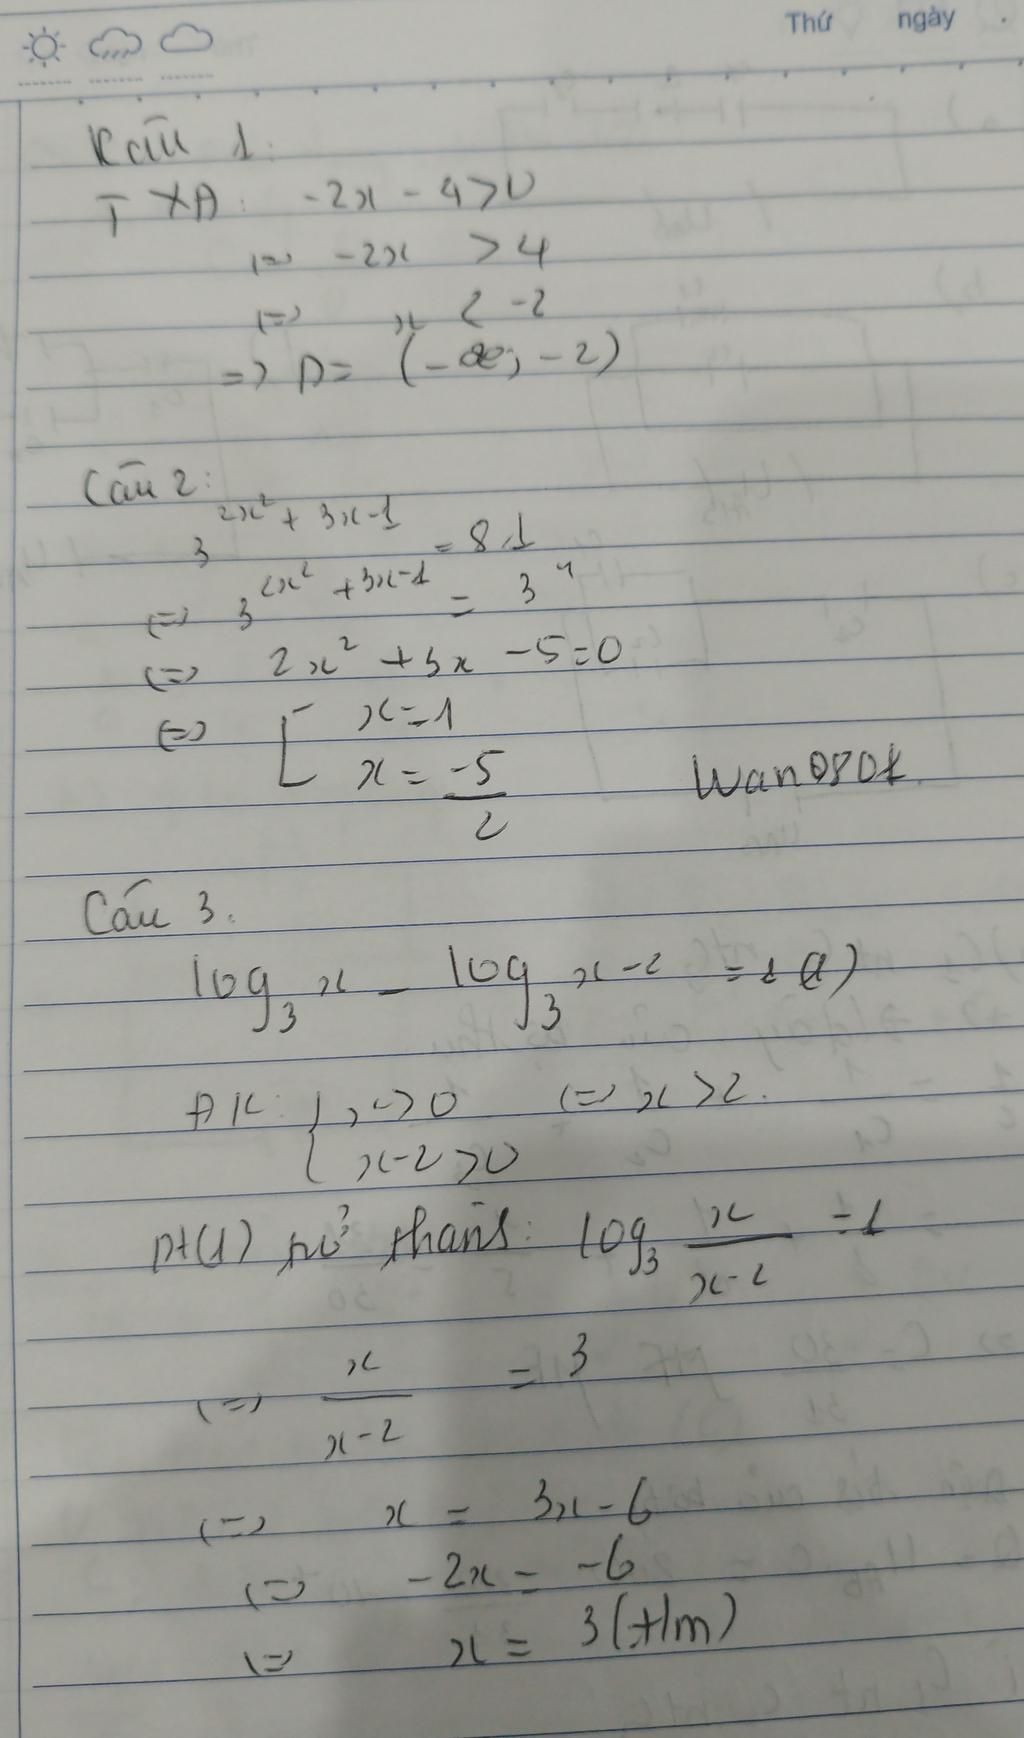 Thứ ngày
Câu 1:
TXĐ: -2x - 4 > 0
<=> -2x > 4
<=> x < -2
=> D = (-∞; -2)
Câu 2:
3^(2x² + 3x - 1) = 81
<=> 3^(2x² + 3x - 1) = 3^4
<=> 2x² + 3x - 5 = 0
<=> [ x = 1
x = -5/2
Wan0801.
Câu 3.
log₃ x - log₃ x - 2 = 1 (1)
ĐK: { x > 0 <=> x > 2.
x - 2 > 0
pt(1) trở thành: log₃ x/(x - 2) = 1
<=> x/(x - 2) = 3
<=> x = 3x - 6
<=> -2x = -6
<=> x = 3 (t/m)